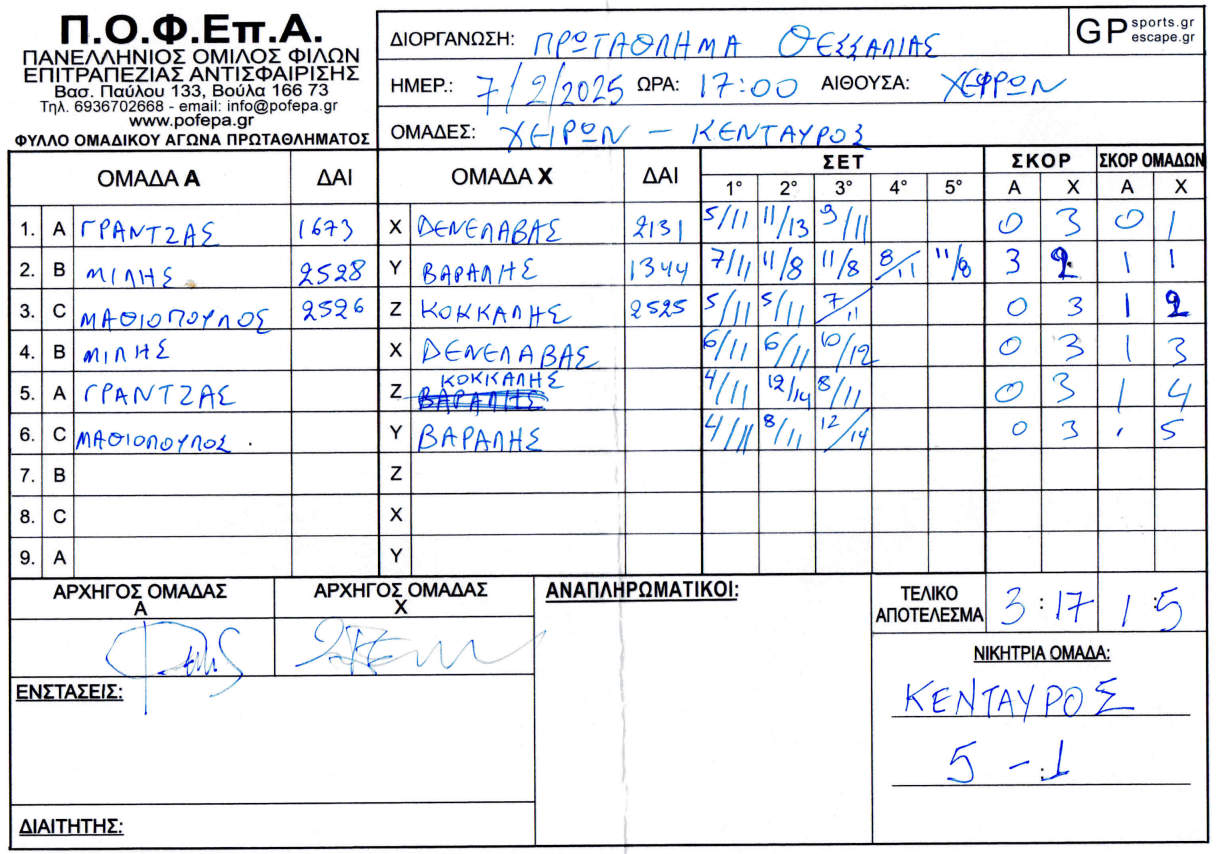 Π.Ο.Φ.Επ.Α.
ΠΑΝΕΛΛΗΝΙΟΣ ΟΜΙΛΟΣ ΦΙΛΩΝ
ΕΠΙΤΡΑΠΕΖΙΑΣ ΑΝΤΙΣΦΑΙΡΙΣΗΣ
Βασ. Παύλου 133, Βούλα 166 73
Τηλ. 6936702668 - email: info@pofepa.gr
www.pofepa.gr
ΦΥΛΛΟ ΟΜΑΔΙΚΟΥ ΑΓΩΝΑ ΠΡΩΤΑΘΛΗΜΑΤΟΣ
ΔΙΟΡΓΑΝΩΣΗ: ΠΡΩΤΑΘΛΗΜΑ ΘΕΣΣΑΛΙΑΣ
GP sports.gr
escape.gr
ΗΜΕΡ.: 7/2/2025 ΩΡΑ: 17:00 ΑΙΘΟΥΣΑ:
ΟΜΑΔΕΣ: ΧΕΙΡΩΝ - ΚΕΝΤΑΥΡΟΣ
ΟΜΑΔΑ Α ΔΑΙ ΟΜΑΔΑ Χ ΔΑΙ ΣΕΤ ΣΚΟΡ ΣΚΟΡ ΟΜΑΔΩΝ
1° 2° 3° 4° 5° Α Χ Α Χ
1. A ΓΡΑΝΤΖΑΣ 1673 X ΔΕΝΕΛΑΒΑΣ 2131 5/11 11/13 9/11 0 3 0 1
2. B ΜΙΛΗΣ 2528 Y ΒΑΡΑΛΗΣ 1344 7/11 11/8 11/8 8/11 11/8 3 2 1 1
3. C ΜΑΘΙΟΠΟΥΛΟΣ 2526 Z ΚΟΚΚΑΛΗΣ 2525 5/11 5/11 7/11 0 3 1 2
4. B ΜΙΛΗΣ X ΔΕΝΕΛΑΒΑΣ 6/11 6/11 10/12 0 3 1 3
5. A ΓΡΑΝΤΖΑΣ Z ΚΟΚΚΑΛΗΣ ΒΑΡΑΛΗΣ 4/11 12/14 8/11 0 3 1 4
6. C ΜΑΘΙΟΠΟΥΛΟΣ . Y ΒΑΡΑΛΗΣ 4/11 8/11 12/14 0 3 1 5
7. B Z
8. C X
9. A Y
ΑΡΧΗΓΟΣ ΟΜΑΔΑΣ Α
ΑΡΧΗΓΟΣ ΟΜΑΔΑΣ Χ
ΑΝΑΠΛΗΡΩΜΑΤΙΚΟΙ:
ΤΕΛΙΚΟ ΑΠΟΤΕΛΕΣΜΑ 3:17 1:5
ΝΙΚΗΤΡΙΑ ΟΜΑΔΑ:
ΚΕΝΤΑΥΡΟΣ
5-1
ΕΝΣΤΑΣΕΙΣ:
ΔΙΑΙΤΗΤΗΣ: